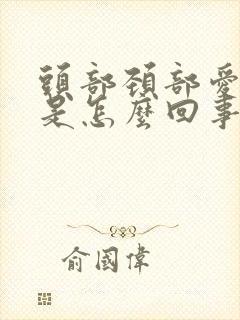 頭部頚部愛
是怎麼回事
俞國偉